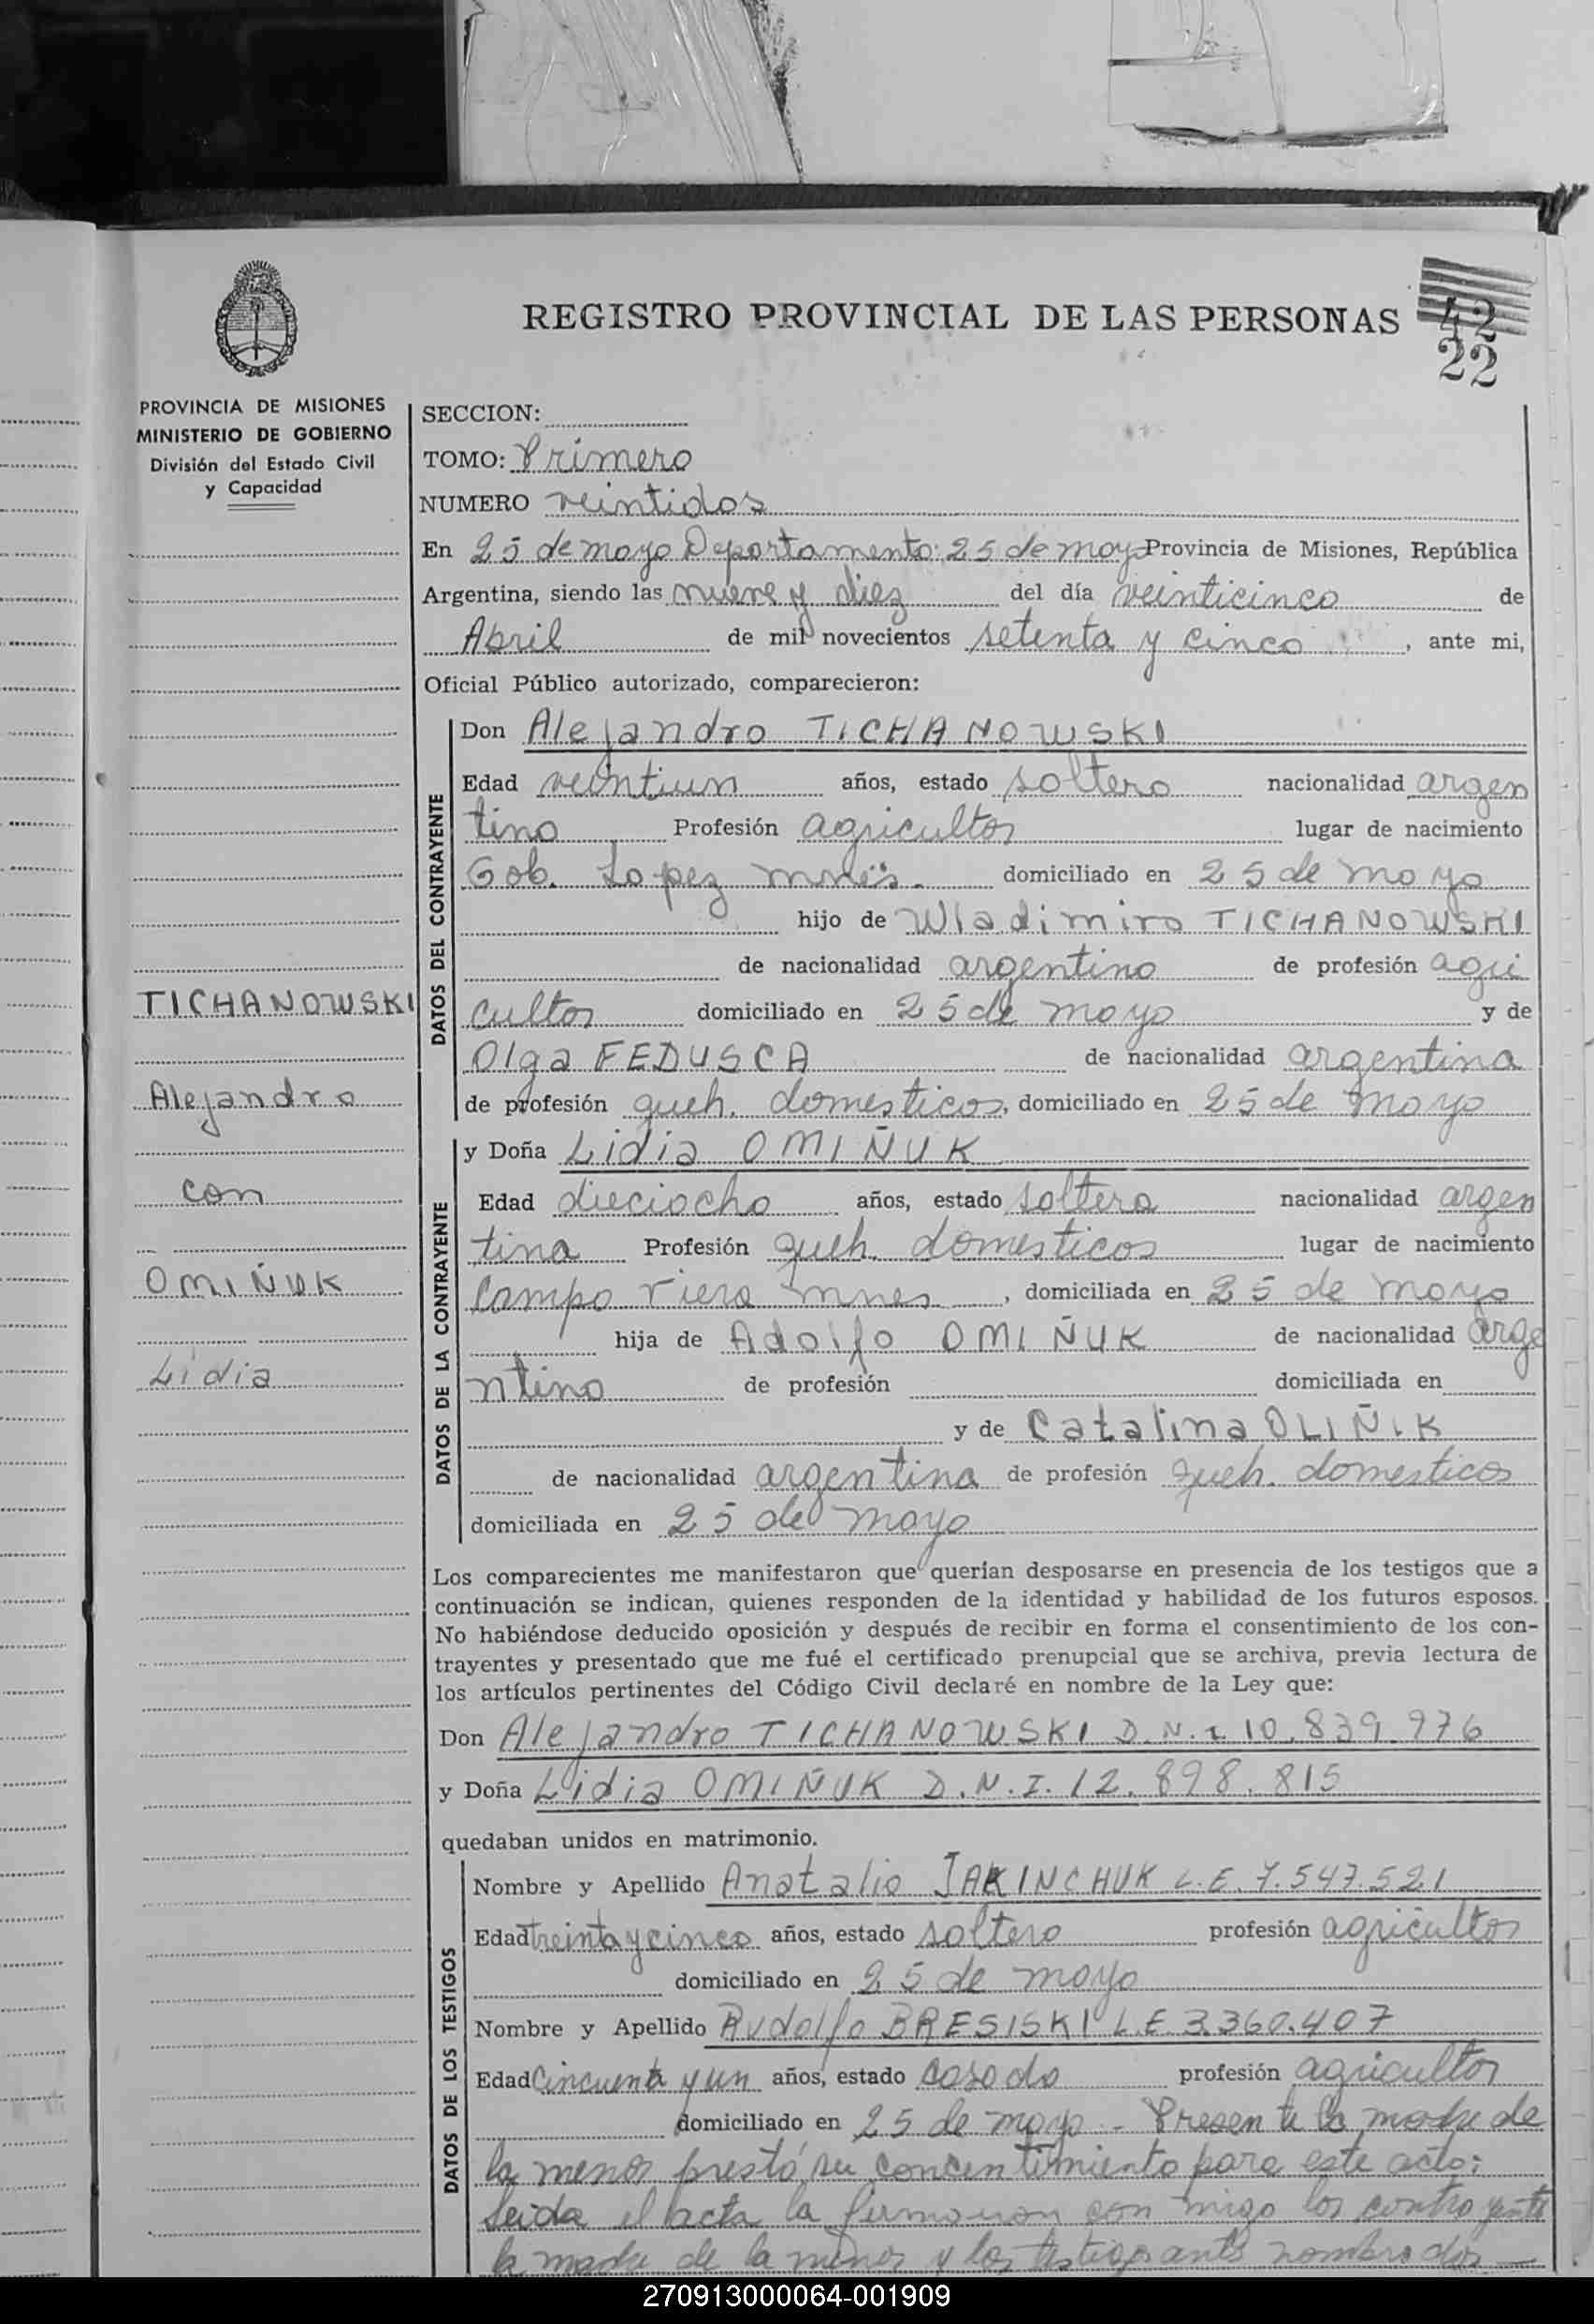 REGISTRO PROVINCIAL DE LAS PERSONAS
42
22
PROVINCIA DE MISIONES
MINISTERIO DE GOBIERNO
División del Estado Civil
y Capacidad
SECCION:
TOMO: Primero
NUMERO veintidos
En 25 de mayo Departamento: 25 de mayo Provincia de Misiones, República
Argentina, siendo las nueve y diez del día veinticinco de
Abril de mil novecientos setenta y cinco, ante mi,
Oficial Público autorizado, comparecieron:
DATOS DEL CONTRAYENTE
Don Alejandro TICHANOWSKI
Edad veintiun años, estado soltero nacionalidad argen
tino Profesión agricultor lugar de nacimiento
Gob. Lopez mnes. domiciliado en 25 de mayo
hijo de Wladimiro TICHANOWSKI
de nacionalidad argentino de profesión agri
cultor domiciliado en 25 de mayo y de
Olga FEDUSCA de nacionalidad argentina
de profesión queh. domesticos, domiciliado en 25 de mayo
TICHANOWSKI
Alejandro
con
OMIÑUK
Lidia
DATOS DE LA CONTRAYENTE
y Doña Lidia OMIÑUK
Edad dieciocho años, estado soltera nacionalidad argen
tina Profesión queh. domesticos lugar de nacimiento
Campo viera mnes, domiciliada en 25 de mayo
hija de Adolfo OMIÑUK de nacionalidad arge
ntino de profesión domiciliada en
y de Catalina OLIÑIK
de nacionalidad argentina de profesión queh. domesticos
domiciliada en 25 de mayo
Los comparecientes me manifestaron que querían desposarse en presencia de los testigos que a
continuación se indican, quienes responden de la identidad y habilidad de los futuros esposos.
No habiéndose deducido oposición y después de recibir en forma el consentimiento de los con-
trayentes y presentado que me fué el certificado prenupcial que se archiva, previa lectura de
los artículos pertinentes del Código Civil declaré en nombre de la Ley que:
Don Alejandro TICHANOWSKI D.N.I 10.839.976
y Doña Lidia OMIÑUK D.N.I. 12.898.815
quedaban unidos en matrimonio.
DATOS DE LOS TESTIGOS
Nombre y Apellido Anatalio JAKINCHUK L.E. 7.547.521
Edad treinta y cinco años, estado soltero profesión agricultor
domiciliado en 25 de mayo
Nombre y Apellido Rudolfo BRESISKI L.E. 3.360.407
Edad cincuenta y un años, estado casado profesión agricultor
domiciliado en 25 de mayo - Presente la madre de
la menor prestó su concentimiento para este acto:
Leida el acta la firmaron con migo los contrayente
la madre de la menor y los testigos antes nombrados —
270913000064-001909